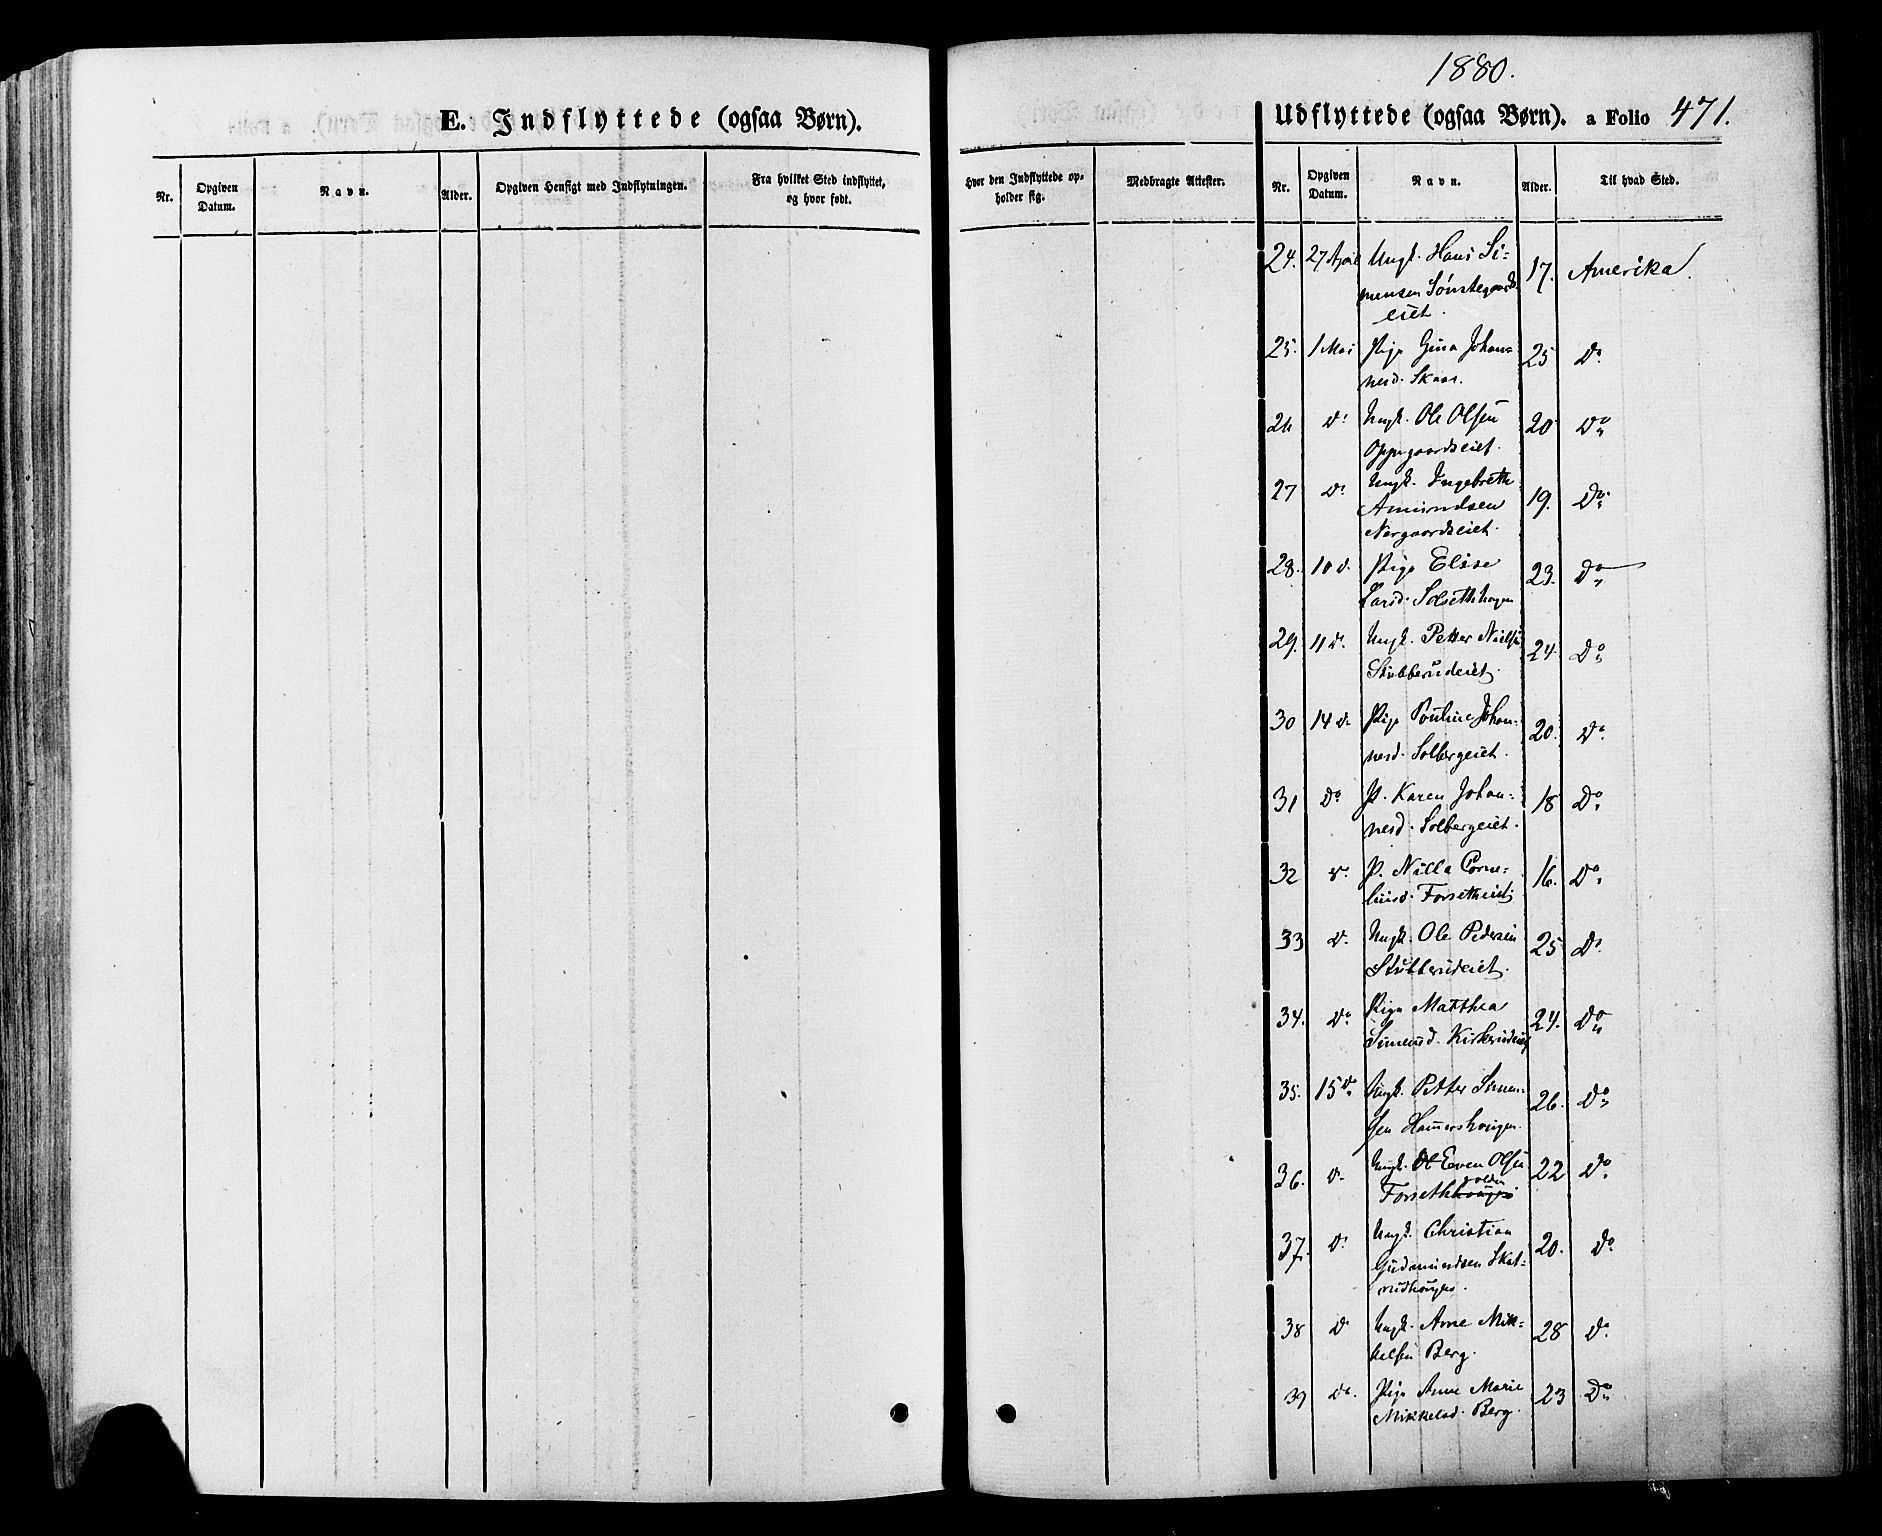 1880.
E. Indflyttede (ogsaa Børn).
Udflyttede (ogsaa Børn). a Folio 471.
Nr. Opgiven Datum. Navn. Alder. Opgiven Hensigt med Indflytningen. Fra hvilket Sted indflyttet, og hvor født. Hvor den Indflyttede opholder sig. Medbragte Attester.
Nr. Opgiven Datum. Navn. Alder. Til hvad Sted.
24. 27 April Ungk. Hans Si=
mensen Sønstegaards
eiet. 17. Amerika.
25. 1 Mai Pige Gina Johan=
nesd. Skaar. 25 Do
26 Do Ungk. Ole Olsen
Oppegaardseiet. 20 Do
27 Do Ungk. Ingebreth
Amundsen
Nergaardseiet. 19. Do
28. 10 D. Pige Elise
Larsd. Solsethhagen 23. Do
29. 11 D. Ungk. Petter Nielsen
Stubberudeiet. 24 Do
30 14 D. Pige Pouline Johan=
nesd. Solbergeiet. 20. Do
31 Do P. Karen Johan=
nesd. Solbergeiet. 18 Do
32 D. P. Nilla Corne=
liusd. Forsetheiet. 16. Do
33 D. Ungk. Ole Pedersen
Stubberudeiet. 25 Do
34. Do Pige Matthea
Simensd. Kirkerudeiet 24. Do
35. 15 Do Ungk. Petter Simen=
sen Hammershougen. 26. Do
36. D. Ungk. Even Olsen
Forseth 22 Do
37. Do Ungk. Christian
Gudmundsen Skat=
rudhougen. 20. Do
38 Do Ungk. Arne Mik=
kelsen Berg. 28 Do
39 Do Pige Anne Marie
Mikkelsd. Berg. 23 Do